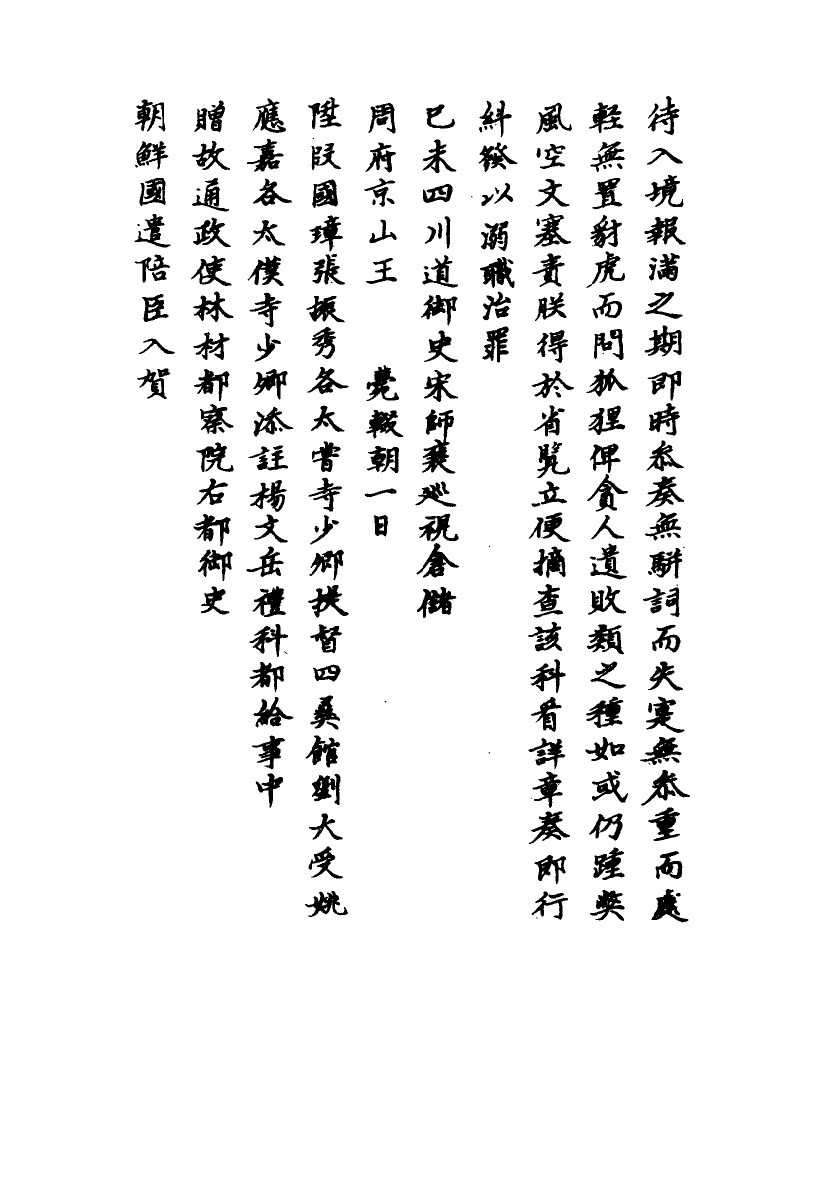 待入境報滿之期即時叅奏無駢詞而失寔無叅重而處
輕無置豺虎而問狐狸俾貪人遺敗類之種如或仍踵獘
風空文塞責朕得於省覧立便摘查該科看詳章奏即行
糾發以溺職治罪
己未四川道御史宋師襄巡視倉儲
周府京山王　　薨輟朝一日
陞段國璋張振秀各太嘗寺少卿提督四彝館劉大受姚
應嘉各太僕寺少卿添註楊文岳禮科都給事中
贈故通政使林材都察院右都御史
朝鮮國遣陪臣入賀